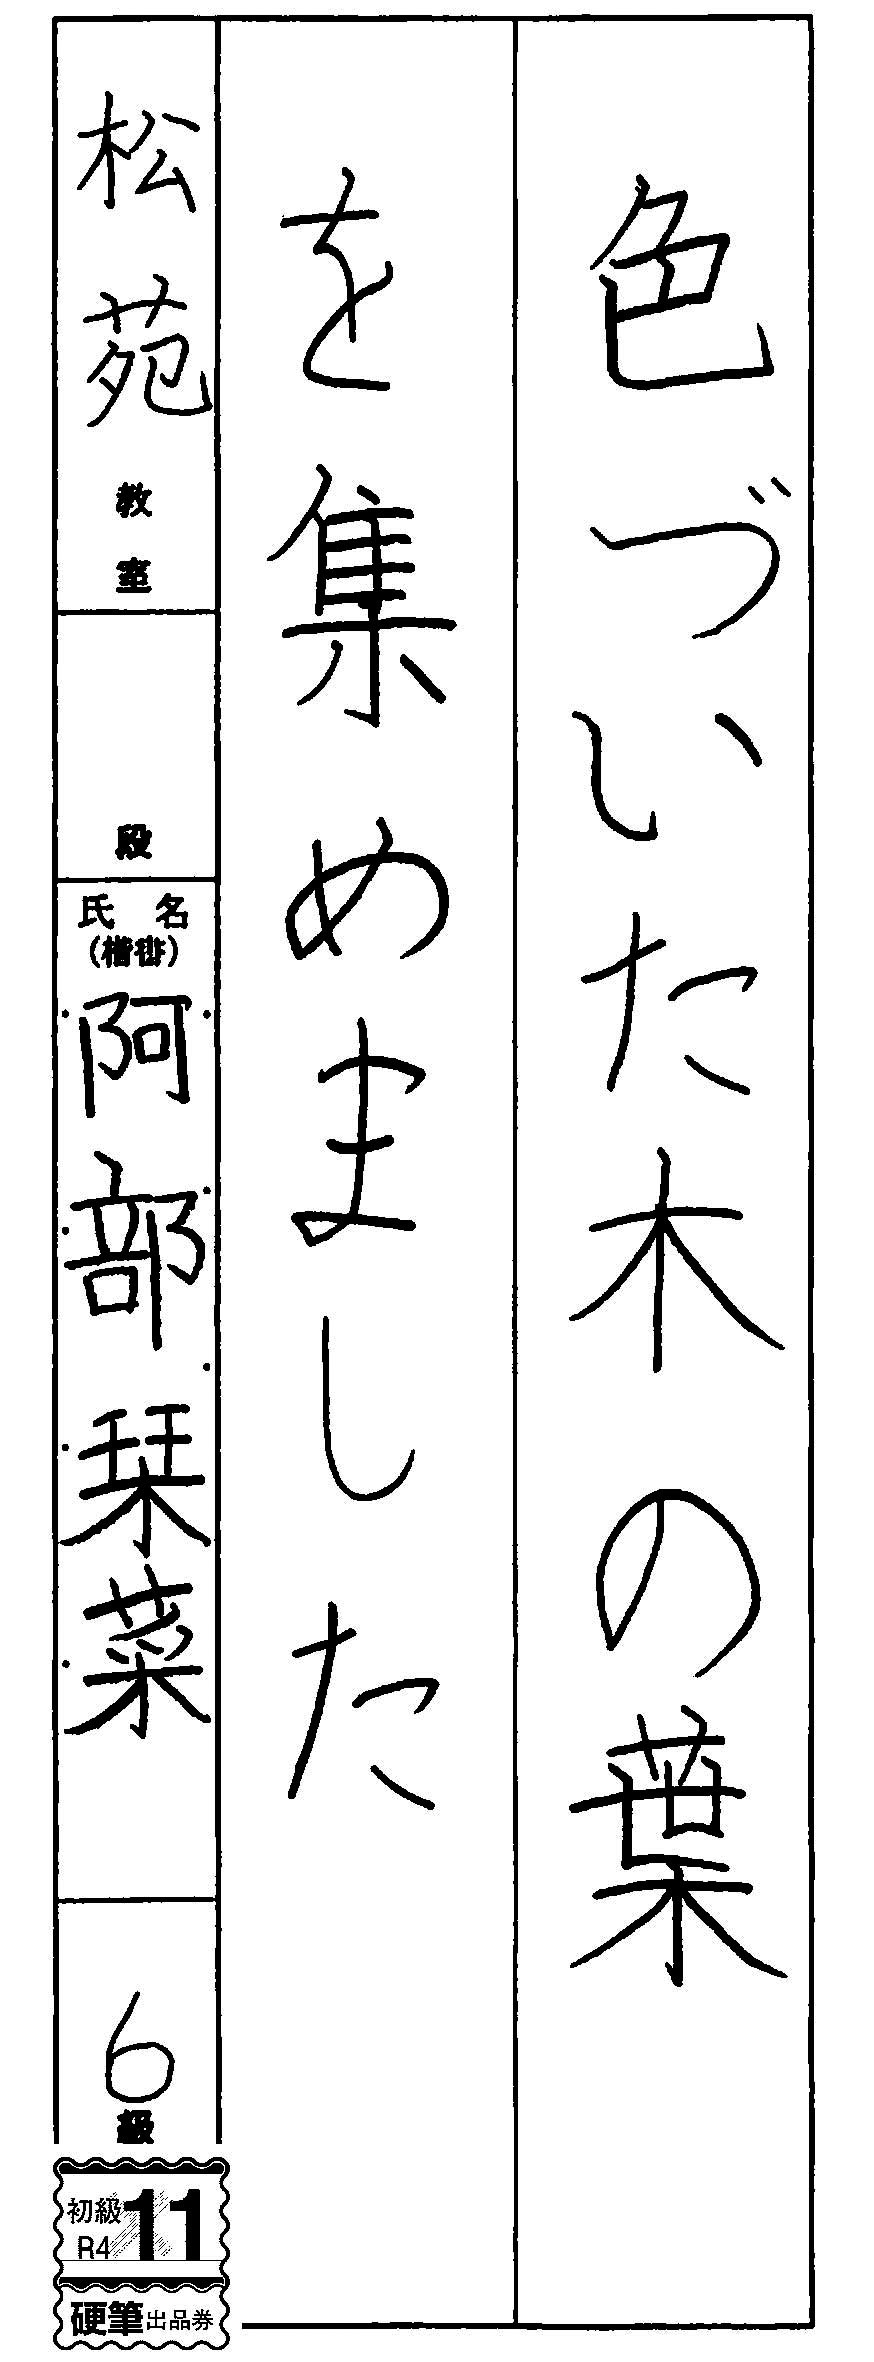 色づいた木の葉
を集めました
松苑教室
段
氏名
(楷書)
阿部栞菜
6級
初級
R4
11
硬筆出品券